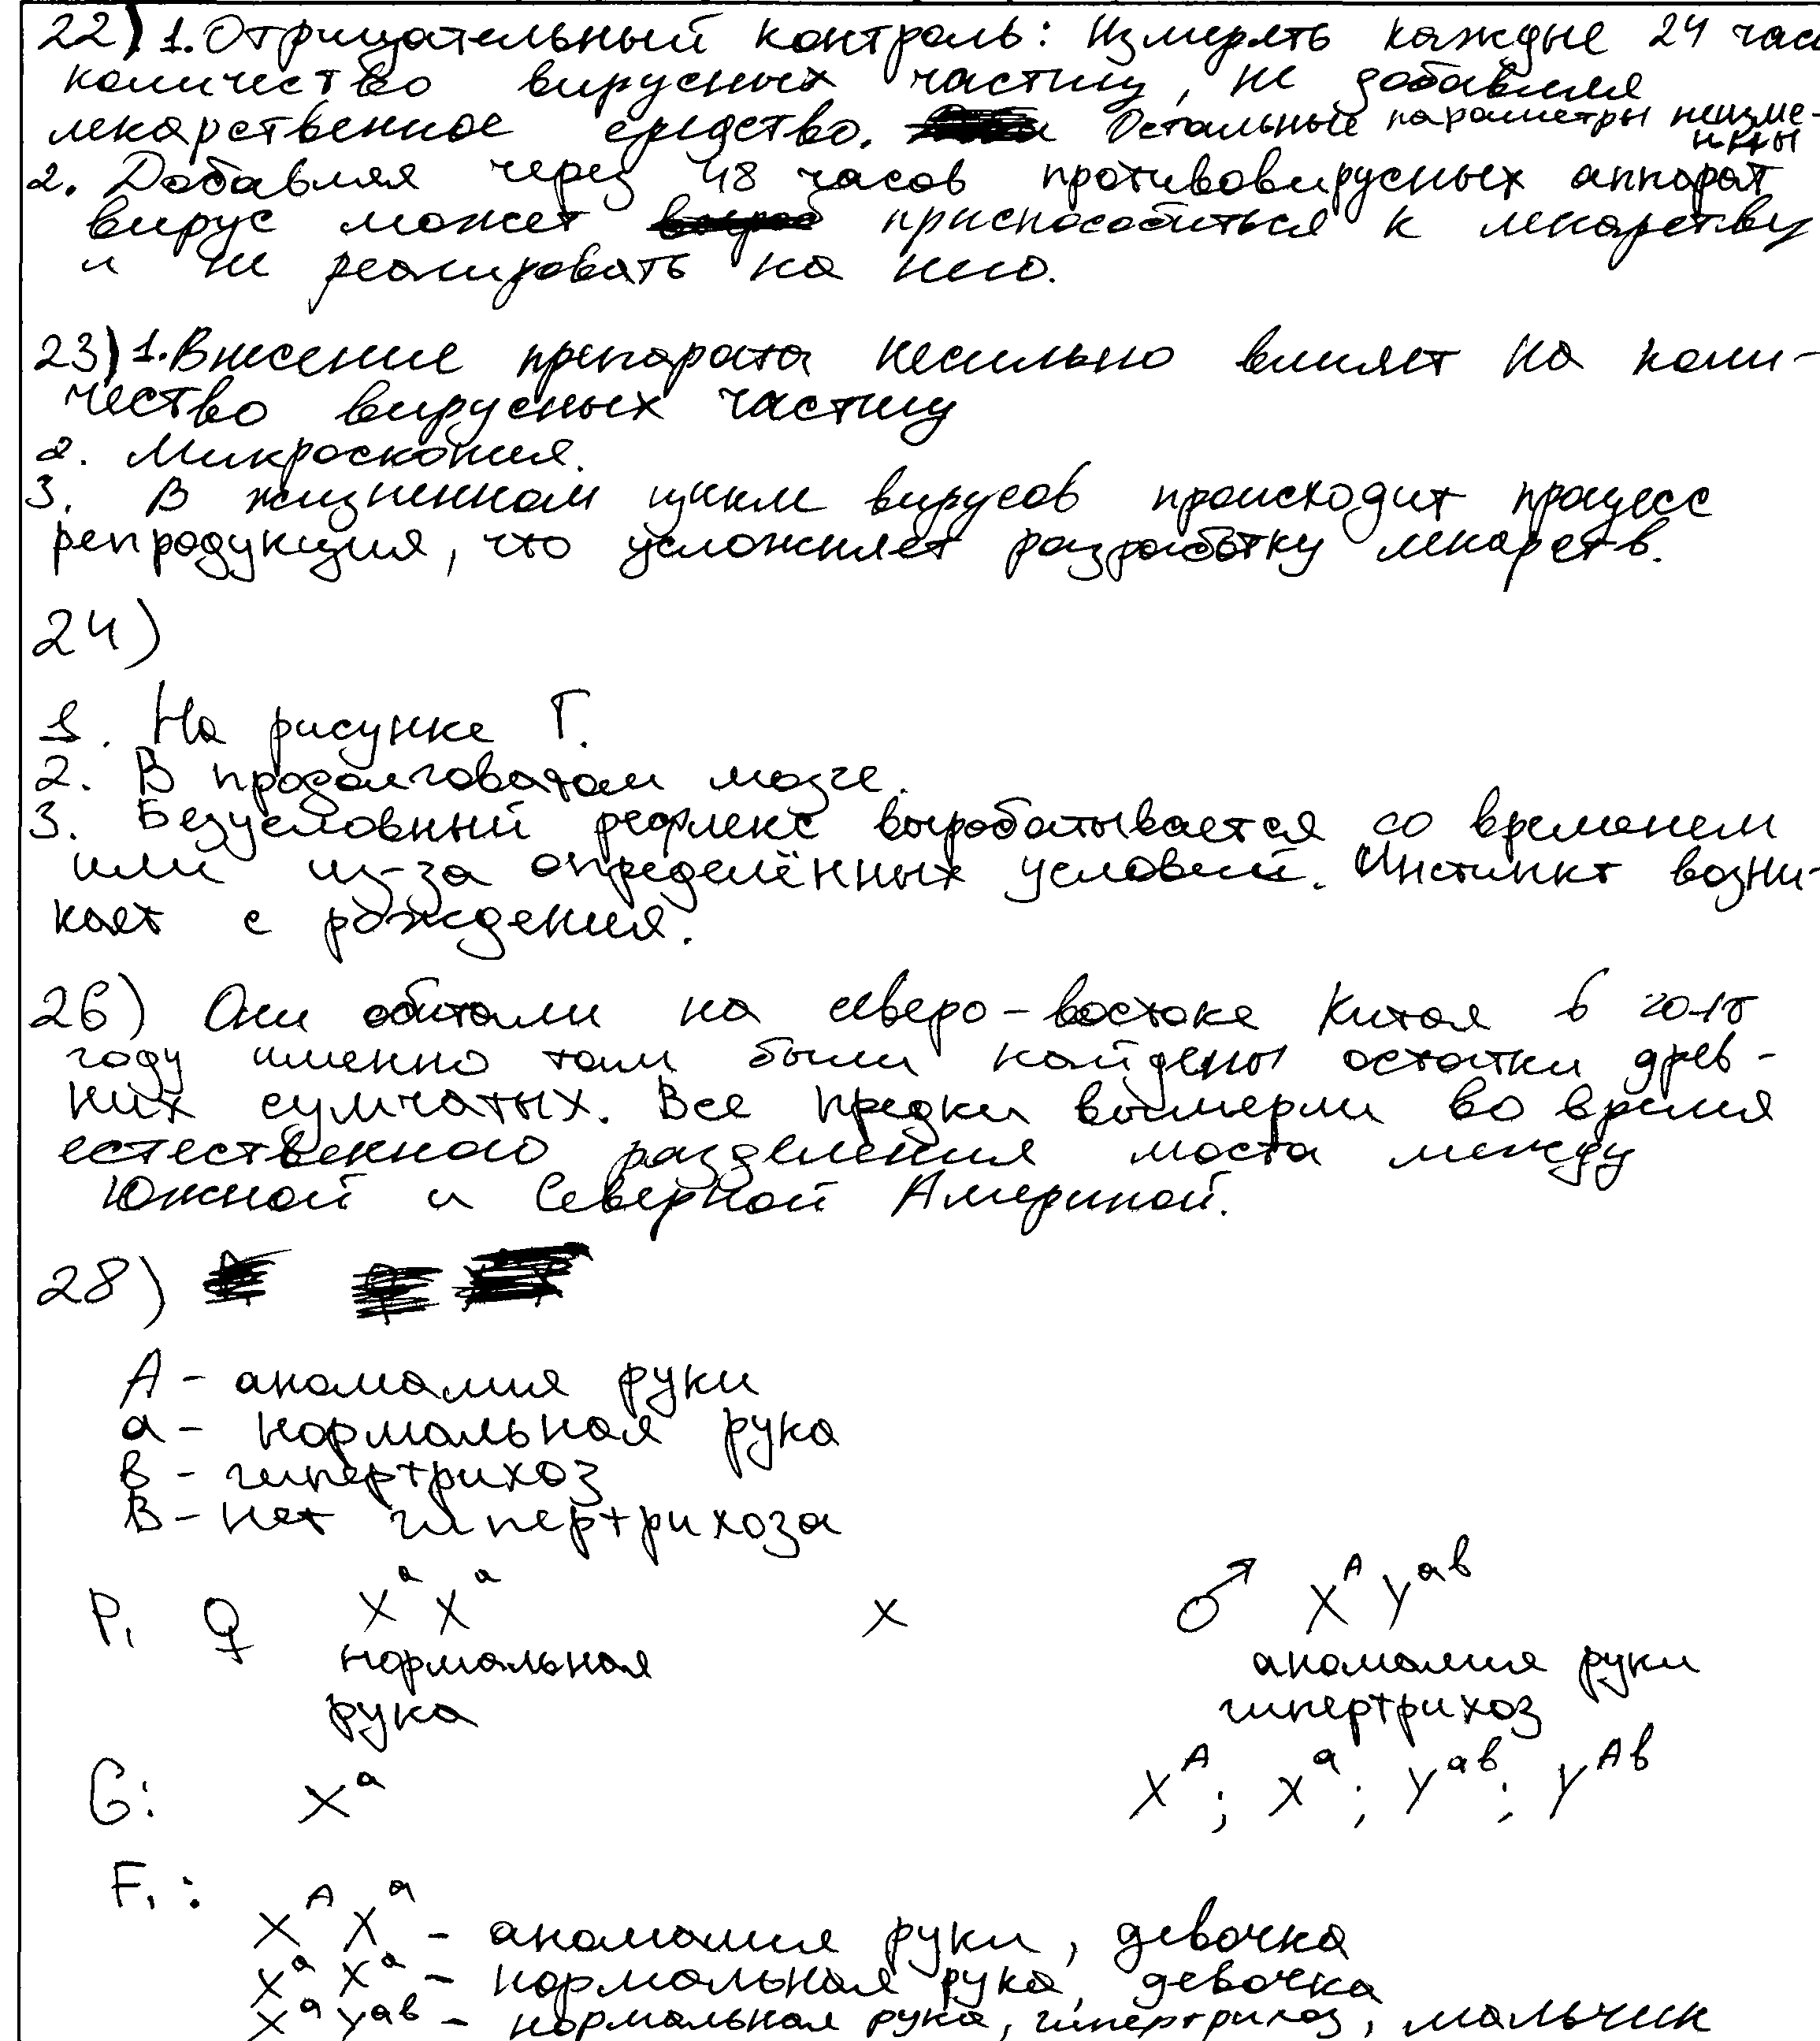 22) 1. Отрицательный контроль: Измерять каждые 24 час
количество вирусных частиц, не добавляя
лекарственное средство. Остальные параметры неизме-
нны
2. Добавляя через 48 часов противовирусных аппорат
вирус может приспособиться к лекарству
и не реагировать на него.
23) 1. Внесение препарата несильно влияет на коли-
чество вирусных частиц
2. Микроскопия.
3. В жизненном цикле вирусов происходит процесс
репродукция, что усложняет разработку лекарств.
24)
1. На рисунке Г.
2. В продолговатом мозге.
3. Безусловный рефлекс вырабатывается со временем
или из-за определённых условий. Инстинкт возни-
кает с рождения.
26) Они обитали на северо-востоке Китая в
году именно там были найдены остатки древ-
них сумчатых. Все предки вымерли во время
естественного разделения моста между
Южной и Северной Америкой.
28)
А - аномалия руки
а - нормальная рука
в - гипертрихоз
В - нет гипертрихоза
P₁ ♀ XᵃXᵃ x ♂ XᴬYᵃᵇ
нормальная аномалия руки
рука гипертрихоз
G: Xᵃ Xᴬ; Xᵃ; Yᵃᵇ; Yᴬᵇ
F₁:
XᴬXᵃ - аномалия руки, девочка
XᵃXᵃ - нормальная рука, девочка
XᵃYᵃᵇ - нормальная рука, гипертрихоз, мальчик